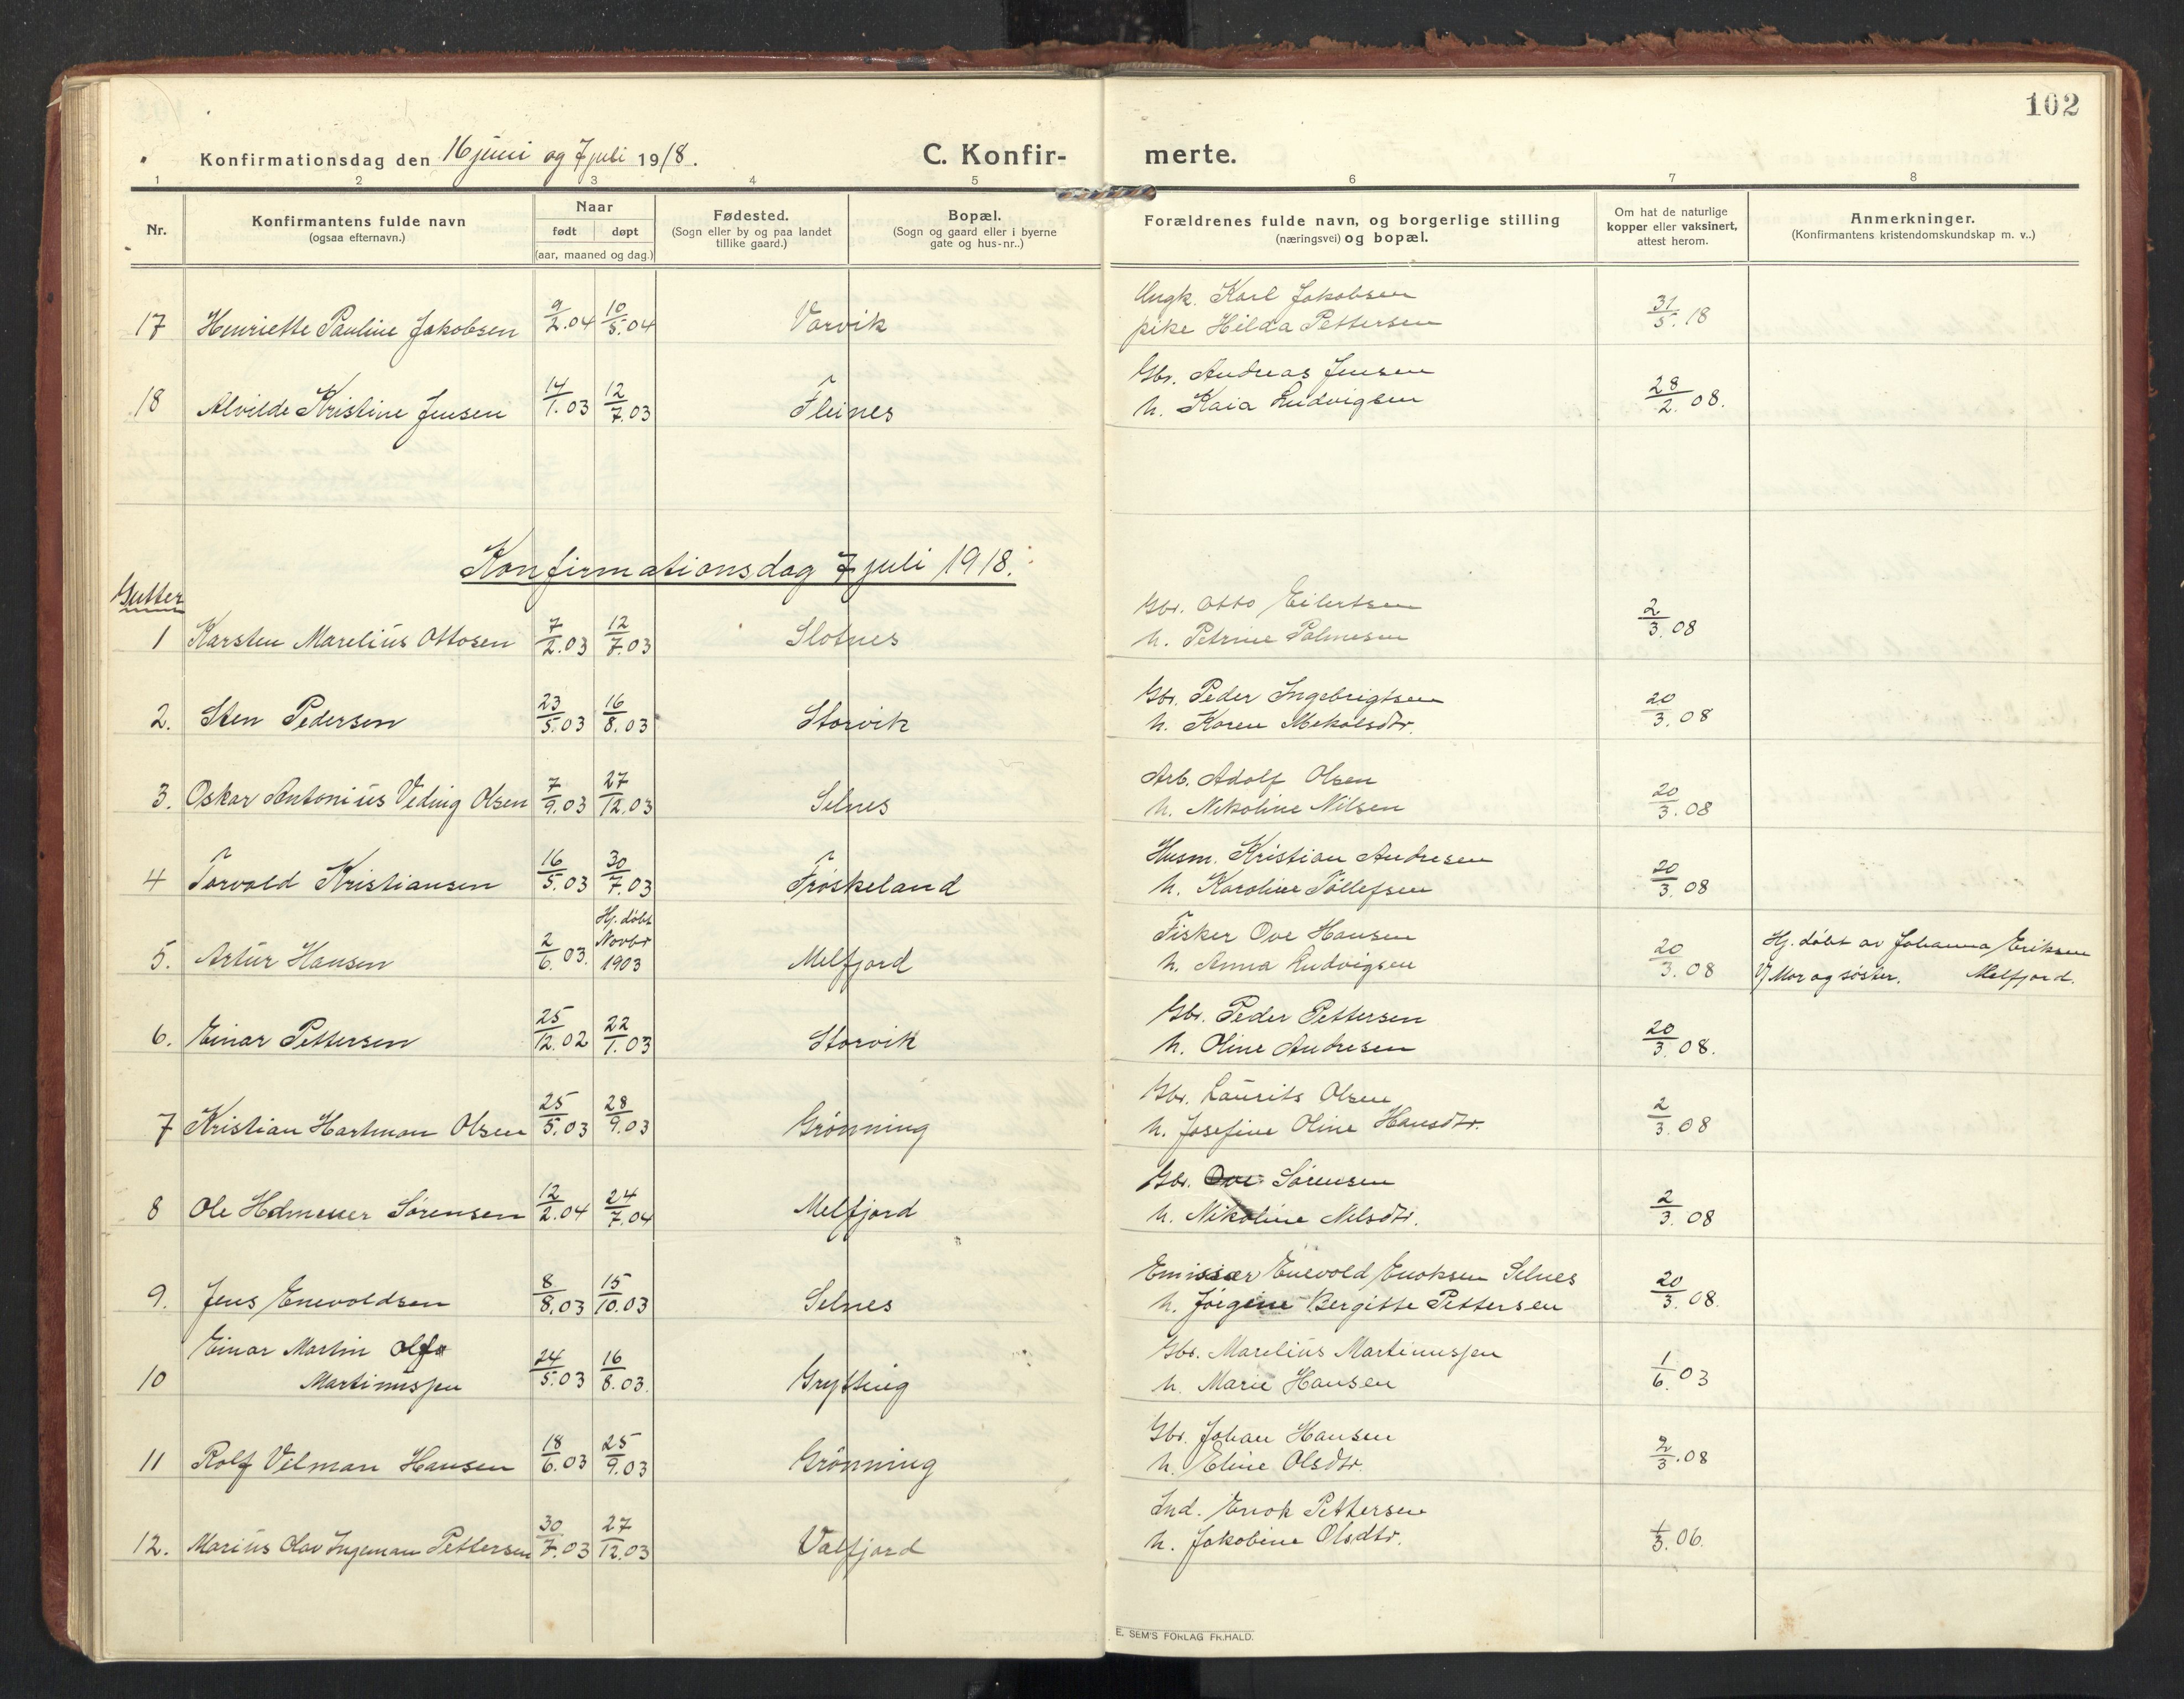 102
Konfirmationsdag den 16 juni og 7 juli 1918.
C. Konfirmerte.
1 2 3 4 5 6 7 8
Nr.
Konfirmantens fulde navn
(ogsaa efternavn.)
Naar
født døpt
(aar, maaned og dag.)
Fødested.
(Sogn eller by og paa landet
tillike gaard.)
Bopæl.
(Sogn og gaard eller i byerne
gate og hus-nr..)
Forældrenes fulde navn, og borgerlige stilling
(næringsvei) og bopæl.
Om hat de naturlige
kopper eller vaksinert,
attest herom.
Anmerkninger.
(Konfirmantens kristendomskundskap m. v..)
Ungk. Karl Jakobsen
17 Henriette Pauline Jakobsen 9/2.04 10/5.04 Vorvik pike Hilda Pettersen 31/5.18
Gbr. Andreas Jensen
18 Alvilde Kristine Jensen 14/1.03 12/7.03 Fleines h. Kaia Ludvigsen 28/2.08.
Konfirmationsdag 7 juli 1918.
Gutter
Gbr. Otto Eilertsen
1 Karsten Marelius Ottosen 7/2.03 12/7.03 Slotnes h. Petrine Palmesen 2/3.08
Gbr. Peder Ingebrigtsen
2. Sten Pedersen 23/5.03 16/8.03 Storvik h. Karen Mekalsdtr. 20/3.08
Arb. Adolf Olsen
3. Oskar Antonius Veding Olsen 7/9.03 27/12.03 Selnes h. Nikoline Nilsen 20/3.08
Husm. Kristian Andresen
4 Torvald Kristiansen 16/5.03 30/7.03 Frøskeland h. Karoline Tollefsen 20/3.08
Fisker Ove Hansen
5. Artur Hansen 2/6.03. Hj. døbt Novbr 1903 Melfjord h. Anna Ludvigsen 20/3.08 Hj. døbt av Johanna Eriksen
V/ Mor og søster. Melfjord.
Gbr. Peder Pettersen
6. Einar Pettersen 25/12.02 22/1.03 Storvik h. Oline Andresen 20/3.08.
Gbr. Laurits Olsen
7 Kristian Hartman Olsen 25/5.03 28/9.03 Grønning h. Josefine Oline Hansdtr. 2/3.08
Gbr. Ove Sørensen
8 Ole Sørensen 12/2.04 24/7.04 Melfjord h. Nikoline Nilsdtr. 2/3.08
Emissær Enevold Enoksen Selnes
9. Jens Enevoldsen 8/8.03 15/10.03 Selnes h. Jørgine Bergitte Pettersen 20/3.08.
Einar Martin Gbr. Marelius Martinussen
10 Martinussen 24/5.03 16/8.03. Grytting h. Marie Hansen 1/6.03
Gbr. Johan Hansen
11 Rolf Velman Hansen 18/6.03 25/9.03 Grønning h. Eline Olsdtr. 2/3.08
Ind. Enok Pettersen
12. Marius Olav Ingeman Pettersen 30/7.03 27/12.03 Valfjord h. Jakobine Olsdtr. 1/3.06.
E. SEM'S FORLAG FR.HALD.